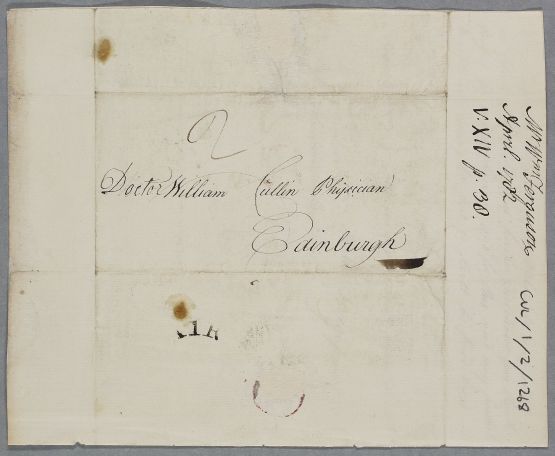 2
Doctor William Cullin Physician
Edinburgh
Mr Wm Ferguson
April. 1782
V. XIV p. 30.
CUL/1/2/1268